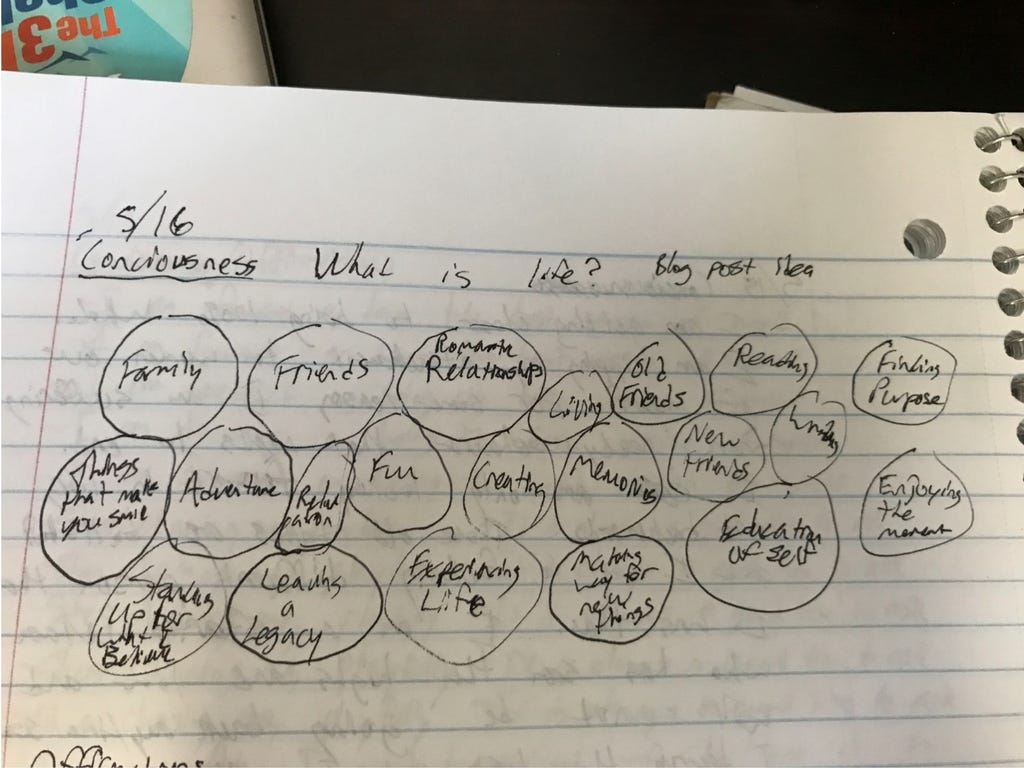 The 3
5/16
Conciousness What is life? Blog post idea
Family
Friends
Romantic
Relationships
Living
Old
Friends
Reading
Finding
Purpose
Things
that make
you smile
Adventure
Fun
Creating
Memories
New
Friends
Enjoying
the
moment
Standing
Up for
what I
Believe
Leaving
a
Legacy
Experiencing
Life
Making
way for
new
things
Education
Of Self